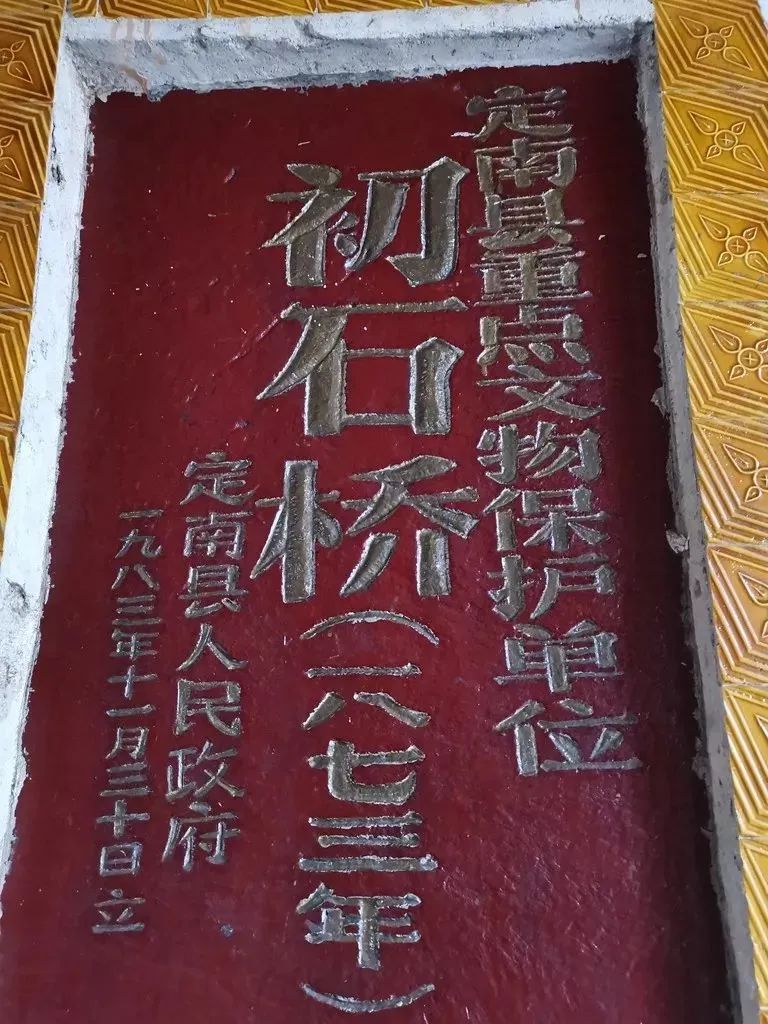 定南县重点文物保护单位
初石桥（一八七三年）
定南县人民政府
一九八三年十一月三十日立